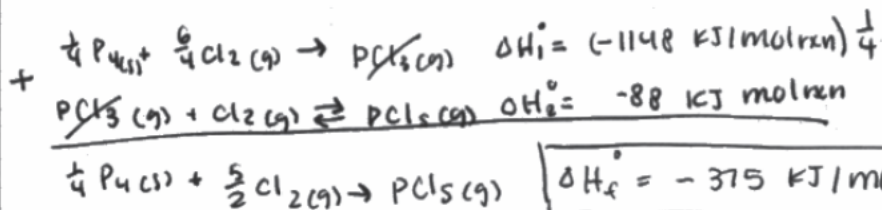 1/4 P4(s) + 6/4 Cl2 (g) → PCl3(g) ΔH1° = (-1148 KJ/molrxn) 1/4
+ PCl3 (g) + Cl2 (g) ⇄ PCl5(g) ΔH2° = -88 KJ molrxn
1/4 P4(s) + 5/2 Cl2(g) → PCl5(g) ΔHf° = - 375 KJ/m